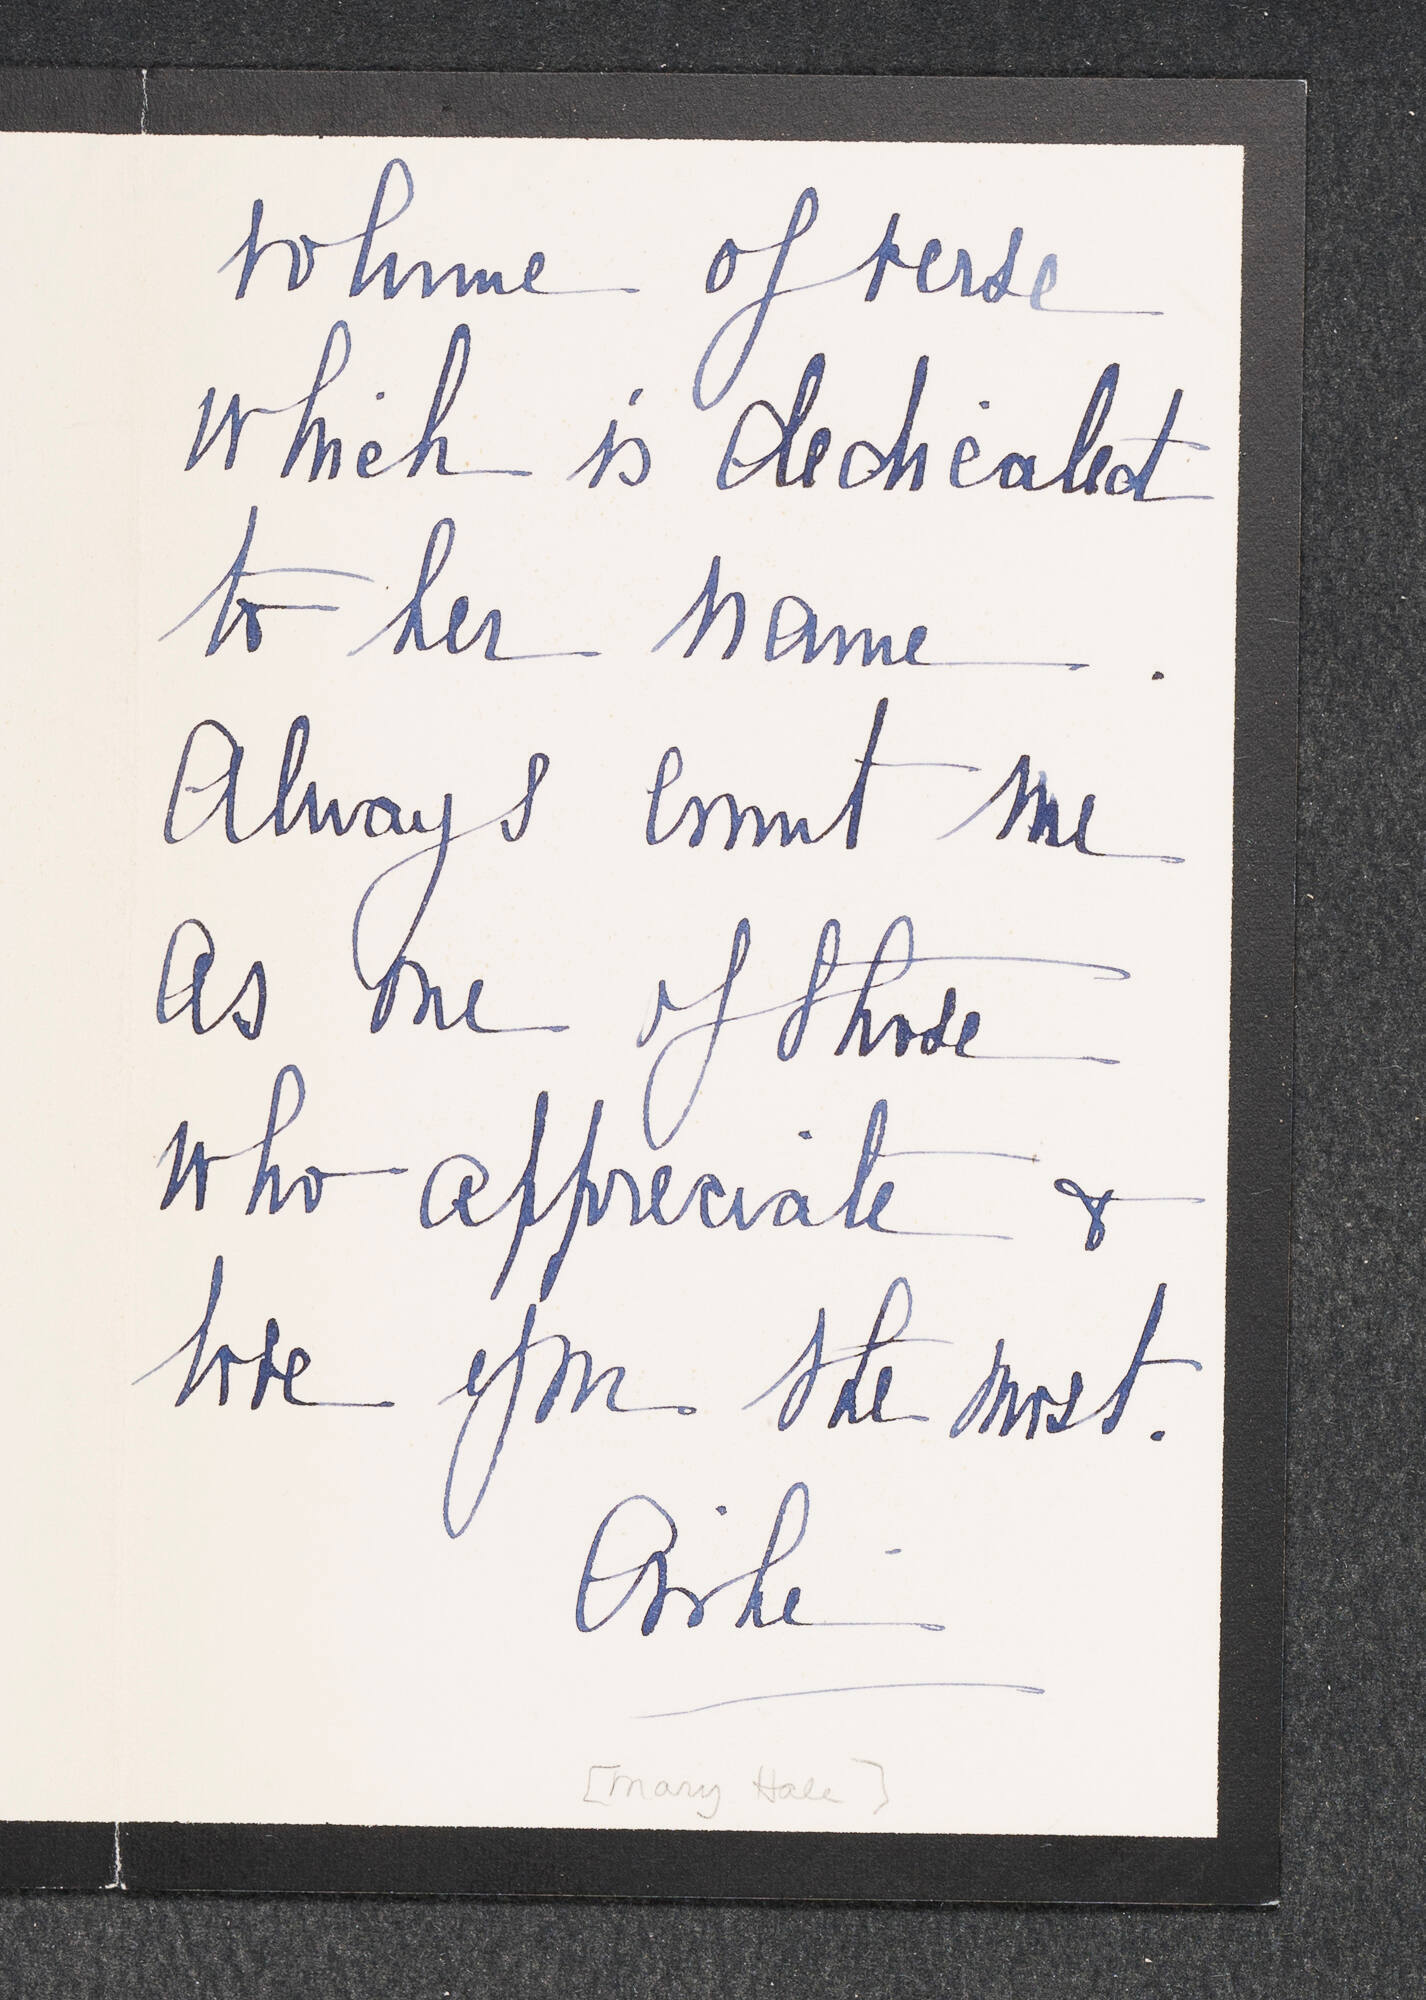 volume of verse
which is dedicated
to her name.
Always count me
as one of those
who appreciate &
love you the most.
[Mary Hale]